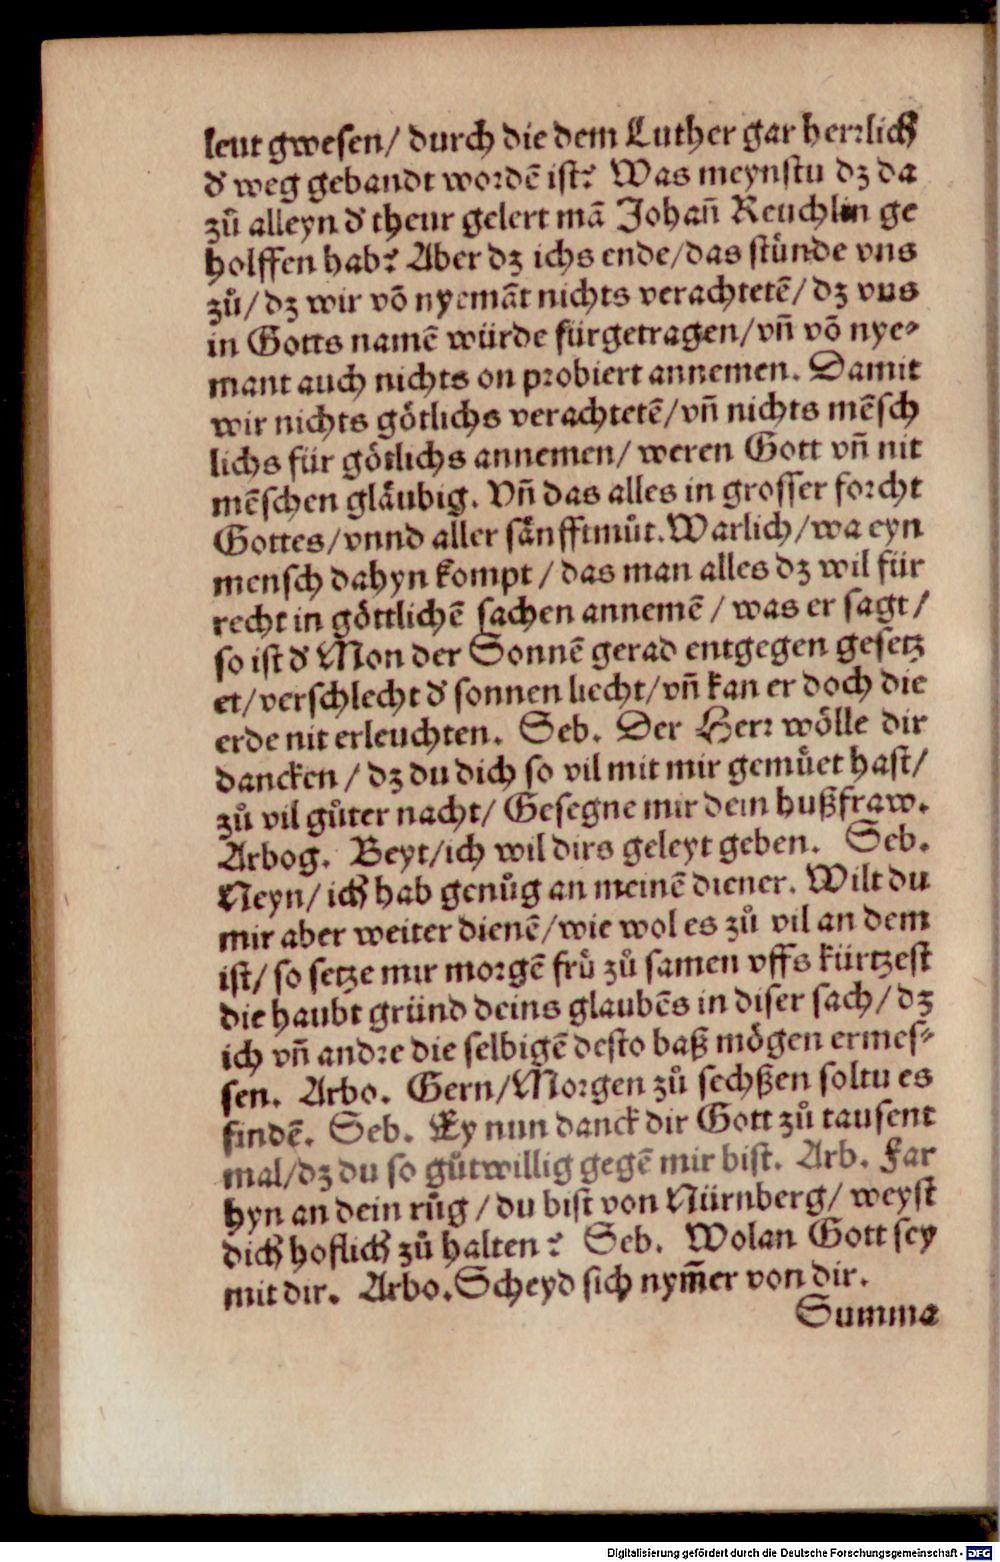 leut gwesen/ durch die dem Luther gar herꝛlich
dͤ weg gebandt woꝛdē ist? Was meynstu dz da
zů alleyn dͤ theur gelert mā Johañ Reuchlin ge
holffen hab? Aber dz ichs ende/das stünde vns
zů/ dz wir võ nyemāt nichts verachtetē/ dz vns
in Gotts namē würde fürgetragen/vñ võ nye⸗
mant auch nichts on pꝛobiert annemen. Damit
wir nichts götlichs verachtetē/vñ nichts mēsch
lichs für götlichs annemen/ weren Gott vñ nit
mēschen gläubig. Vñ das alles in grosser foꝛcht
Gottes/vnnd aller sänfftmůt. Warlich/wa eyn
mensch dahyn kompt / das man alles dz wil für
recht in göttlichē sachen annemē / was er sagt/
so ist dͤ Mon der Sonnē gerad entgegen gesetz
et/verschlecht dͤ sonnen liecht/vñ kan er doch die
erde nit erleuchten. Seb. Der Herꝛ wölle dir
dancken / dz du dich so vil mit mir gemůet hast/
zů vil gůter nacht/ Gesegne mir dein hußfraw.
Arbog. Beyt/ich wil dirs geleyt geben. Seb.
Neyn/ ich hab genůg an meinē diener. Wilt du
mir aber weiter dienē/wie wol es zů vil an dem
ist/ so setze mir moꝛgē frů zů samen vffs kürtzest
die haubt gründ deins glaubēs in diser sach/ dz
ich vñ andꝛe die selbigē desto baß mögen ermes⸗
sen. Arbo. Gern/Moꝛgen zů sechßen soltu es
findē. Seb. Ey nun danck dir Gott zů tausent
mal/dz du so gůtwillig gegē mir bist. Arb. Far
hyn an dein růg / du bist von Nürnberg/ weyst
dich hoflich zů halten? Seb. Wolan Gott sey
mit dir. Arbo. Scheyd sich nym̃er von dir.
Summa
Digitalisierung gefördert durch die Deutsche Forschungsgemeinschaft - DFG